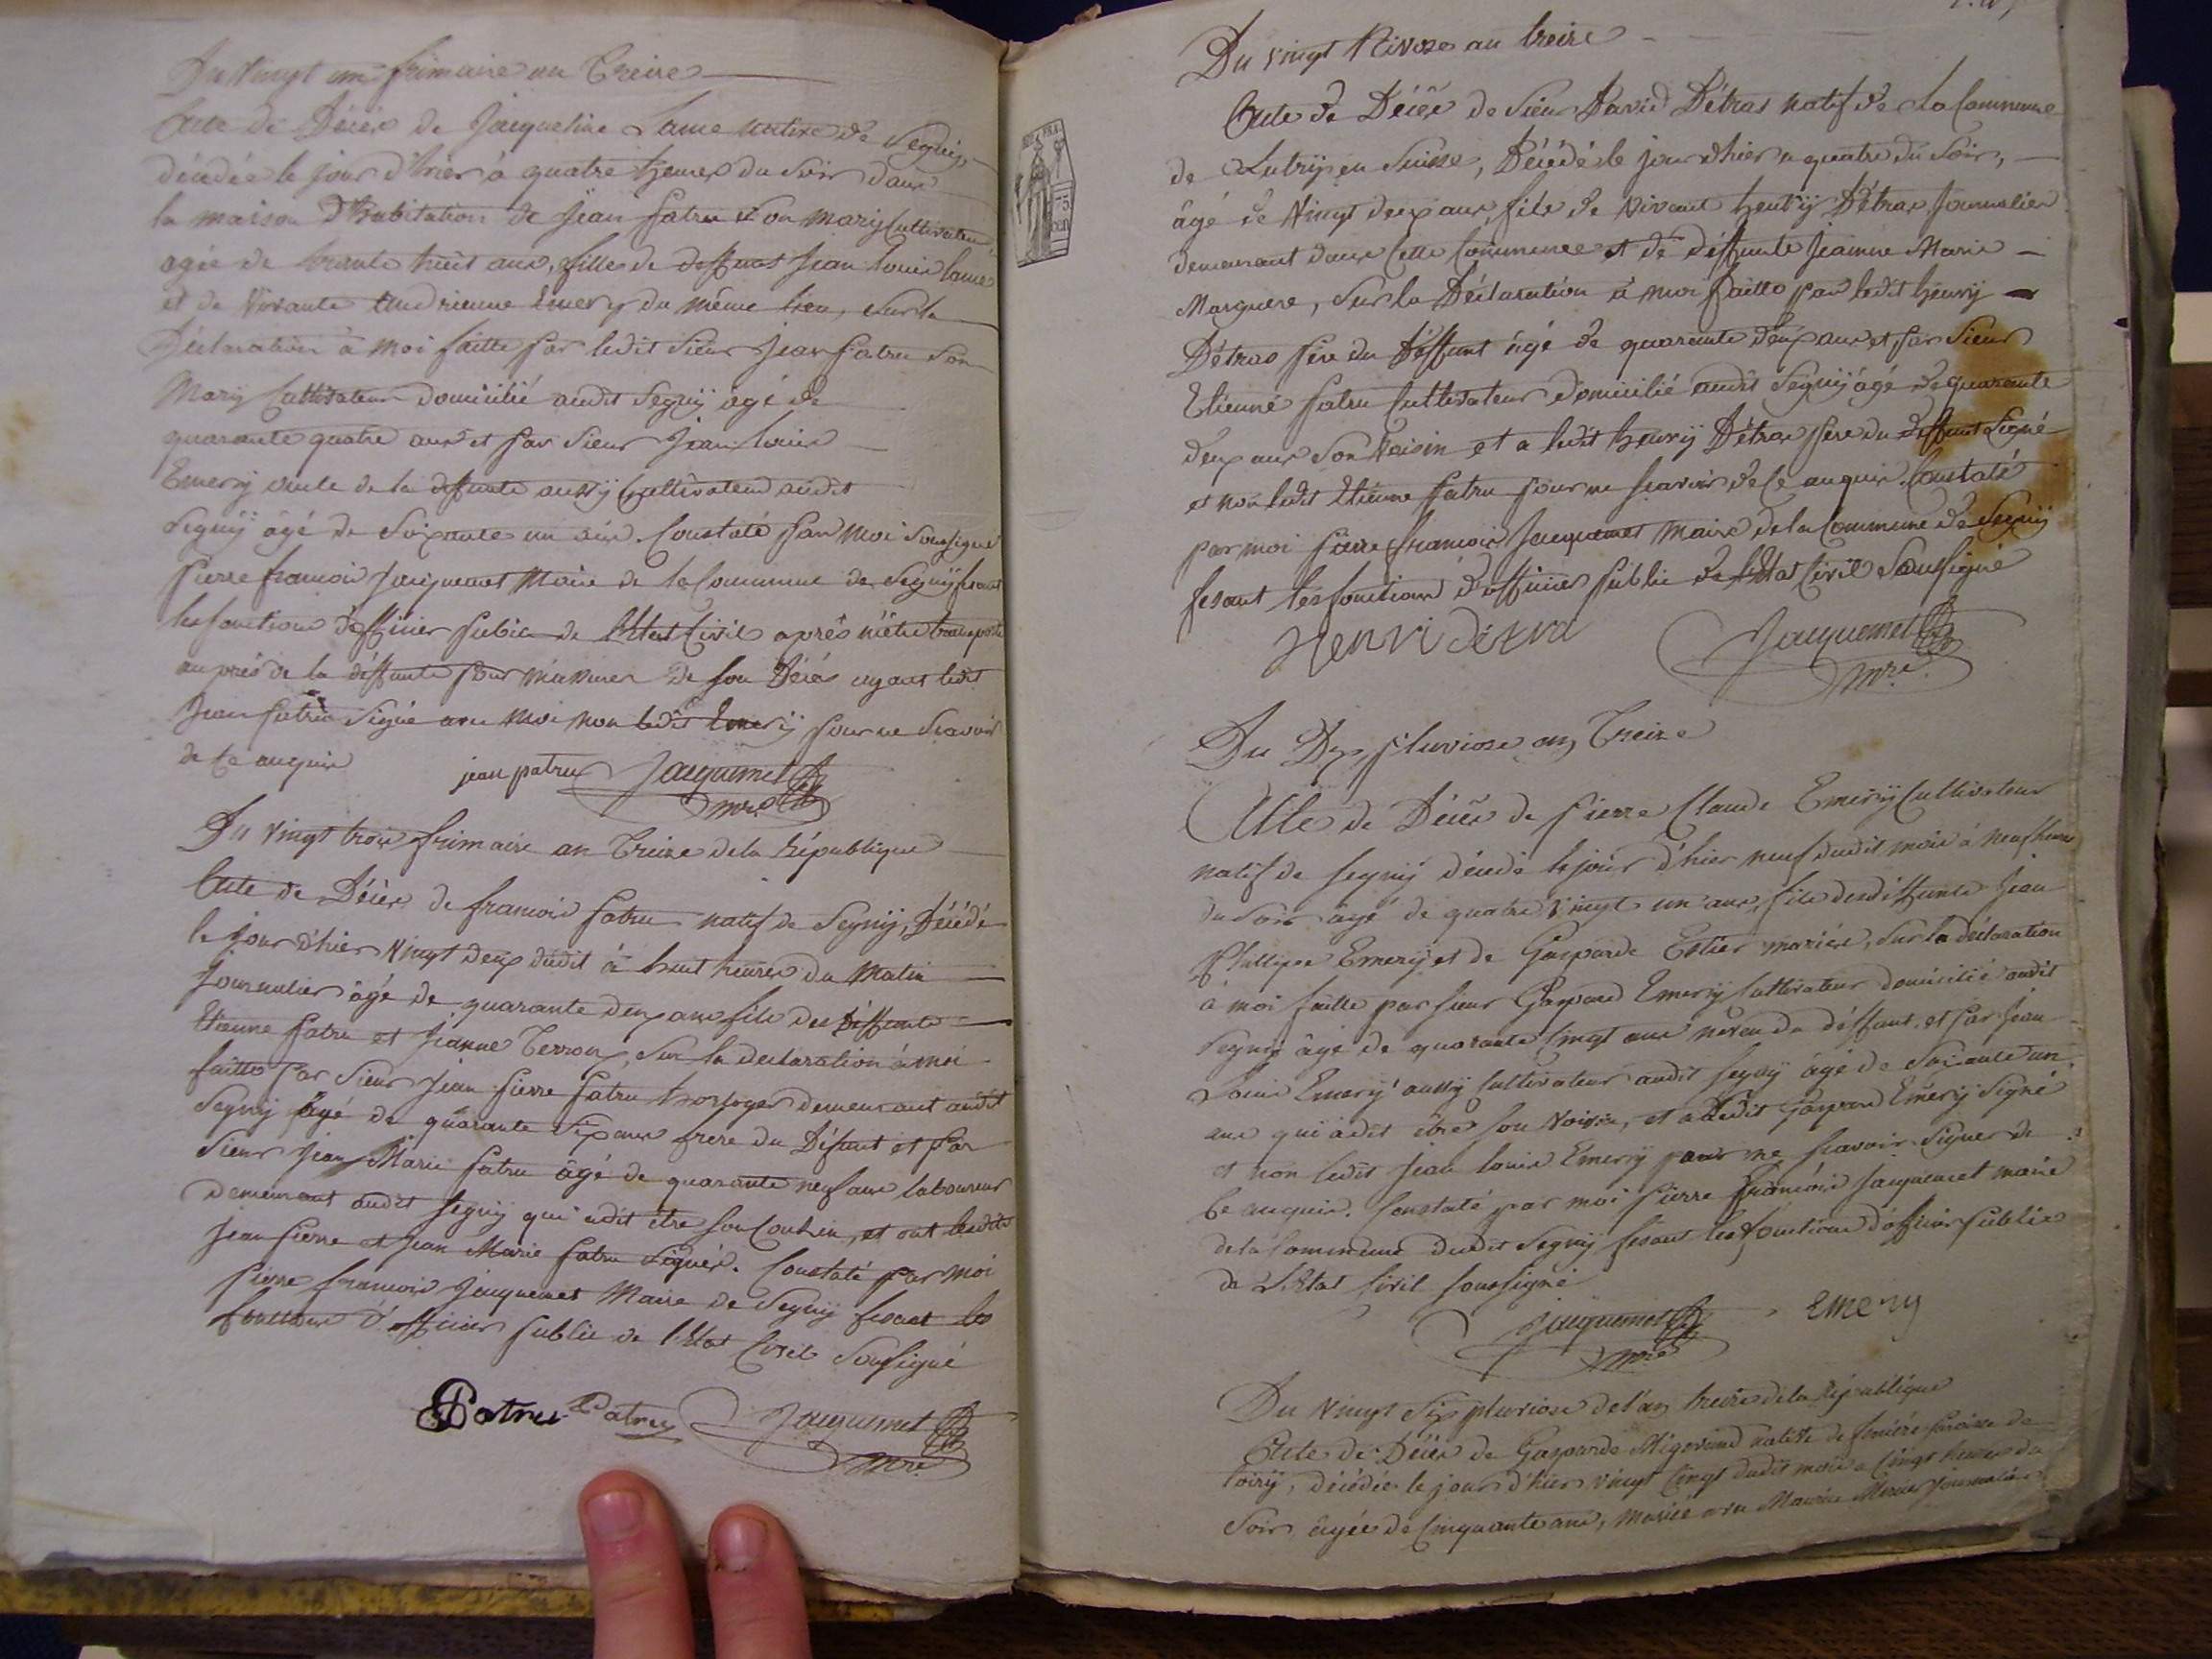 Du Vingt un frimaire an Treize
Acte de Décès de Jacqueline Lame native de Segny,
décédée le jour d'hier à quatre heures du Soir dans
la maison D'habitation de Jean Patru Son Mary Cultivateur,
agée de trante huit ans, fille de deffunt Jean Louis Lame
et de Vivante Andrienne Emery du même lieu, Sur la
Déclaration à moi faitte par ledit Sieur Jean Patru Son
Mary Cultivateur domicilié audit Segny agé de
quarante quatre ans et par Sieur Jean Louis
Emery oncle de la deffunte aussy Cultivateur audit
Segny âgé de Soixante un ans. Constaté par moi Soussigné
Pierre françois Jacquemet Maire de la Commune de Segny fesant
les fonctions d'officier public de l'Etat Civil après m'être transporté
auprès de la deffunte pour m'assurer de son Décès ayant ledit
Jean Patru Signé avec moi non ledit Emery pour ne Scavoir
de ce anquis
jean patru Jacquemet
mre
Du Vingt trois frimaire an Treize de la République
Acte de Décès de françois Patru natif de Segny, Décédé
le jour d'hier Vingt deux dudit à huit heures du Matin
Journalier âgé de quarante deux ans fils des deffunts
Etienne Patru et Jeanne Terroux, Sur la declaration à moi
faitte par Sieur Jean Pierre Patru horloger demeurant audit
Segny âgé de quarante Six ans frere du Défunt et par
Sieur Jean Marie Patru âgé de quarante neuf ans laboureur
demeurant audit Segny qui adit être son Couhin, et ont lesdits
Jean Pierre et Jean Marie Patru Signés. Constaté par moi
Pierre françois Jacquemet Maire de Segny fesant les
fonctions d'officier public de l'Etat Civil Soussigné
Patru Patru Jacquemet
mre
Du vingt Nivoze an treize
Acte de Décès de Sieur David Détras natif de la Commune
de Lutry en Suisse, Décédé le jour d'hier a quatre du Soir,
âgé de Vingt deux ans, fils de Vivant henry Détras Journalier
demeurant dans Cette Commune et de deffunte Jeanne Marie
Marguere, Sur la Déclaration à moi faitte par ledit henry
Détras père du deffunt âgé de quarante deux ans et par Sieur
Etienne Patru Cultivateur domicilié audit Segny âgé de quarante
deux ans Son Voisin et a ledit henry Détras père du deffunt Signé
et non ledit Etienne Patru pour ne scavoir de ce anquis. Constaté
par moi Pierre françois Jacquemet Maire de la Commune de Segny
fesant les fonctions d'officier public de l'Etat Civil Soussigné
Henri détra Jacquemet
mre
Du Dix Pluviose an Treize
Acte de Décès de Pierre Claude Emery Cultivateur
natif de Segny décédé le jour d'hier neuf dudit mois à neuf heures
du Soir âgé de quatre Vingt un ans, fils des deffunts Jean
Phillipe Emery et de Gasparde Estier mariés, Sur la déclaration
à moi faitte par Sieur Gaspard Emery Cultivateur domicilié audit
Segny âgé de quarante Cinqt ans neveu du deffunt, et par Jean
Louis Emery aussy Cultivateur audit Segny âgé de Soixante un
ans qui adit être son Voisin, et a ledit Gaspard Emery Signé
et non ledit Jean Louis Emery pour ne scavoir Signer de
ce anquis. Constaté par moi Pierre François Jacquemet maire
de la Commune dudit Segny fesant les fonctions d'officier public
de L'Etat Civil Soussigné
Jacquemet Emery
mre
Du Vingt Six pluviose de l'an treize de la République
Acte de Décès de Gasparde native de
Décédée le jour d'hier vingt Cinqt dudit mois a Cinqt heures du
Soir âgée de Cinquante ans, mariée avec Journalier